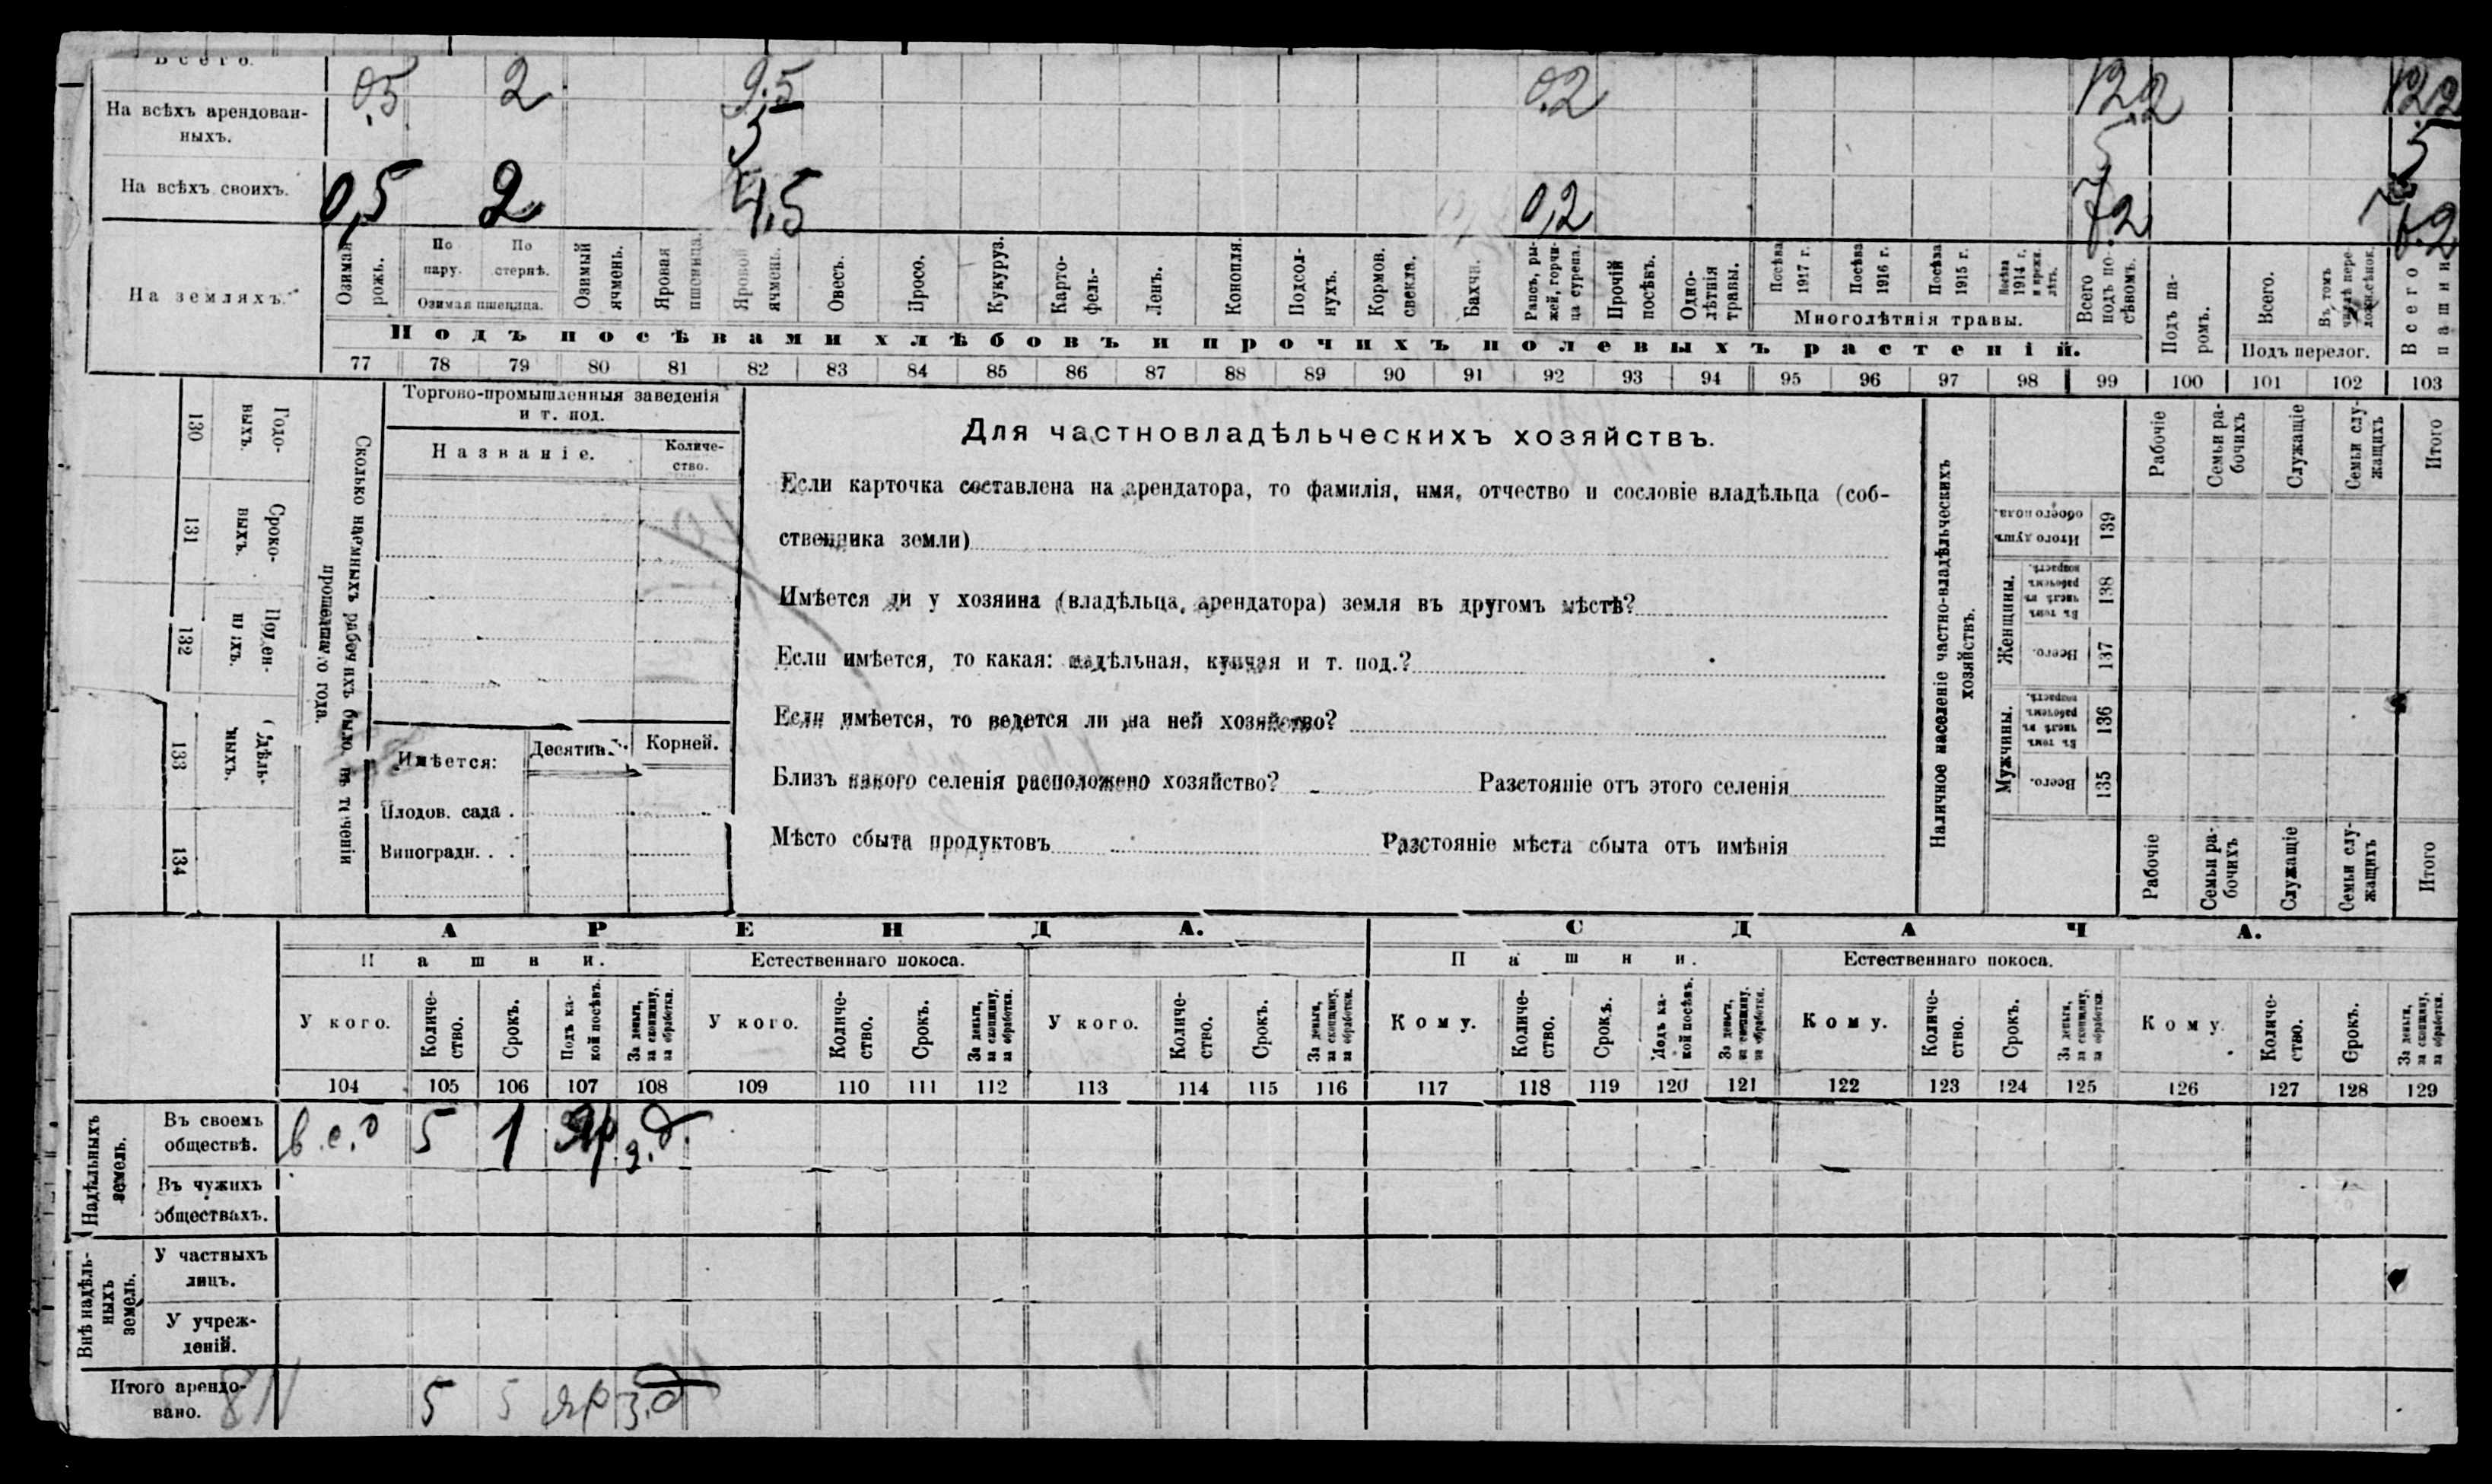 Всего. 0,5 2 9.5 0.2 12.2 12.2
На всѣхъ арендован-
ныхъ. 5 5 5
На всѣхъ своихъ. 0,5 2 4,5 0,2 7.2 7.2
На земляхъ.
Озимая рожь.
По пару.
По стернѣ.
Озимая пшеница.
Озимый ячмень.
Яровая пшеница.
Яровой ячмень.
Овесъ.
Просо.
Кукуруз.
Карто-
фель.
Ленъ.
Конопля.
Подсол-
нухъ.
Кормов.
свекла.
Бахчи.
Рапсъ, ры-
жей, горчи-
ца сурепа.
Прочій
посѣвъ.
Одно-
лѣтнія
травы.
Посѣва
1917 г.
Посѣва
1916 г.
Посѣва
1915 г.
Посѣва
1914 г.
Многолѣтнія травы.
Всего
подъ по-
сѣвомъ.
Подъ па-
ромъ.
Всего.
Въ томъ
числѣ пере-
Подъ перелог.
Всего
пашни
Подъ посѣвами хлѣбовъ и прочихъ полевыхъ растеній.
77 78 79 80 81 82 83 84 85 86 87 88 89 90 91 92 93 94 95 96 97 98 99 100 101 102 103
Сколько наемныхъ рабочихъ было въ теченіи
прошедшаго года.
Годо-
выхъ.
130
Сроко-
выхъ.
131
Поден-
ныхъ.
132
Сдѣль-
ныхъ.
133
134
Торгово-промышленныя заведенія
и т. под.
Названіе.
Количе-
ство.
Имѣется:
Десятин.
Корней.
Плодов. сада .
Виноградн. . .
Для частновладѣльческихъ хозяйствъ.
Если карточка составлена на арендатора, то фамилія, имя, отчество и сословіе владѣльца (соб-
ственника земли)
Имѣется ли у хозяина (владѣльца, арендатора) земля въ другомъ мѣстѣ?
Если имѣется, то какая: надѣльная, купчая и т. под.?
Если имѣется, то ведется ли на ней хозяйство?
Близъ какого селенія расположено хозяйство? Разстояніе отъ этого селенія
Мѣсто сбыта продуктовъ Разстояніе мѣста сбыта отъ имѣнія
Наличное населеніе частно-владѣльческихъ
хозяйствъ.
Рабочіе
Семьи ра-
бочихъ
Служащіе
Семьи слу-
жащихъ
Итого
Итого душъ
обоего пола.
139
Женщины.
Въ томъ
числѣ въ
рабочемъ
возрастѣ.
138
Всего.
137
Мужчины.
Въ томъ
числѣ въ
рабочемъ
возрастѣ.
136
Всего.
135
Рабочіе
Семьи ра-
бочихъ
Служащіе
Семьи слу-
жащихъ
Итого
АРЕНДА. СДАЧА.
Пашни. Естественнаго покоса. Пашни. Естественнаго покоса.
У кого.
Количе-
ство.
Срокъ.
Подъ ка-
кой посѣвъ.
За деньги,
за скопщину,
за обработки.
У кого.
Количе-
ство.
Срокъ.
За деньги,
за скопщину,
за обработки.
У кого.
Количе-
ство.
Срокъ.
За деньги,
за скопщину,
за обработки.
Кому.
Количе-
ство.
Срокъ.
Подъ ка-
кой посѣвъ.
За деньги,
за скопщину,
за обработки.
Кому.
Количе-
ство.
Срокъ.
За деньги,
за скопщину,
за обработки.
Кому.
Количе-
ство.
Срокъ.
За деньги,
за скопщину,
за обработки.
104 105 106 107 108 109 110 111 112 113 114 115 116 117 118 119 120 121 122 123 124 125 126 127 128 129
Надѣльныхъ
земель.
Въ своемъ
обществѣ. в.с.о 5 1 Яр з.д.
Въ чужихъ
обществахъ.
Внѣ надѣль-
ныхъ
земель.
У частныхъ
лицъ.
У учреж-
деній.
Итого арендо-
вано. 5 5 яр з.д